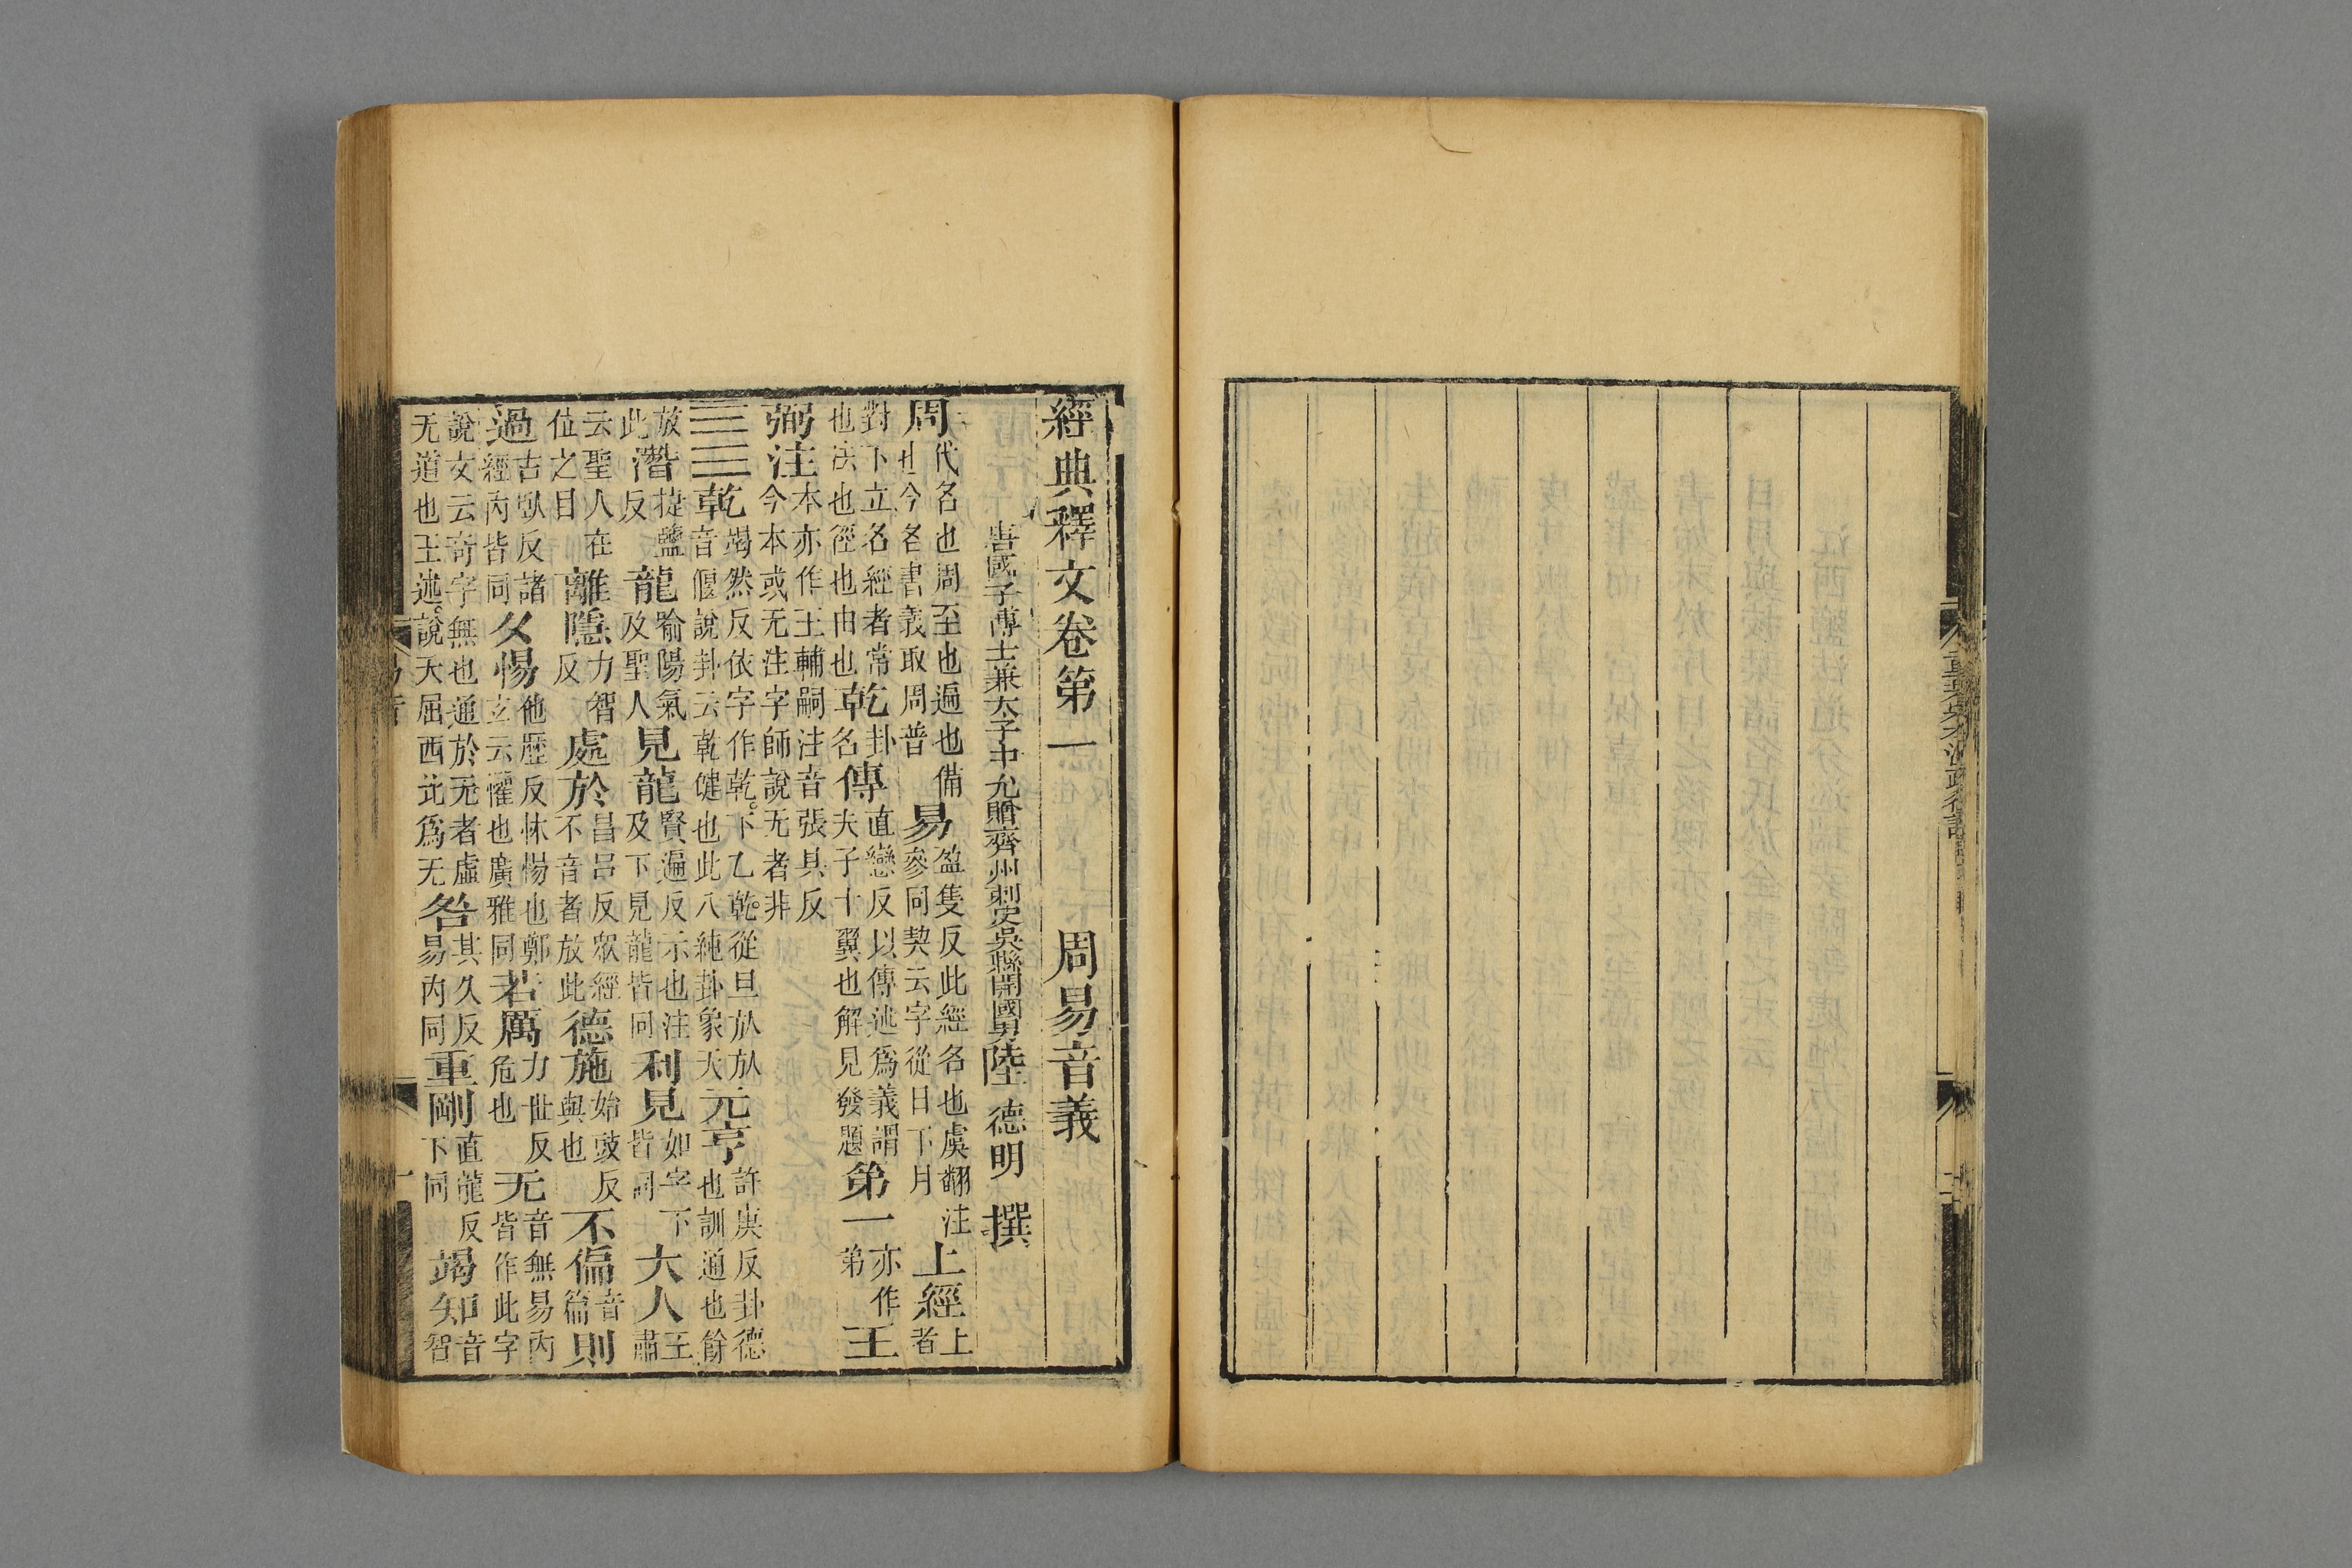 經典釋文卷第一　周易音義
唐國子博士兼太子中允贈齊州刺史吳縣開國男陸德明撰
周代名也周至也遍也備也今名書義取周普易盈隻反此經名也虞翻注參同契云字從日下月上經上者
對下立名經者常也法也徑也由也乾卦名傳直戀反以傳述爲義謂夫子十翼也解見發題第一亦作弟王
弼注本亦作王輔嗣注音張具反今本或无注字師說无者非
☰☰乾竭然反依字作乾下乙乾從旦㫃㫃音偃說卦云乾健也此八純卦象天元亨許庚反卦德也訓通也餘
放此潛捷鹽反龍喻陽氣及聖人見龍賢遍反示也注及下見龍皆同利見如字下皆同大人王肅
云聖人在位之目離隱力智反處於昌呂反眾經不音者放此德施始豉反與也不偏音篇則
過古臥反諸經內皆同夕惕他歷反怵惕也鄭玄云懼也廣雅同若厲力世反危也无音無易內皆作此字
說文云奇字無也通於无者虛无道也王述說天屈西北爲无咎其久反易內同重剛直龍反下同竭知音智